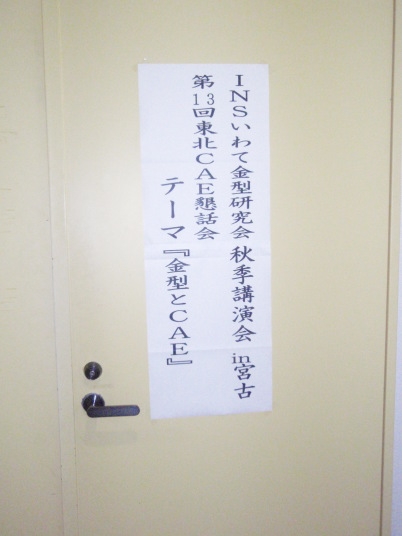 INSいわて金型研究会 秋季講演会 in宮古
第13回東北CAE懇話会
テーマ『金型とCAE』